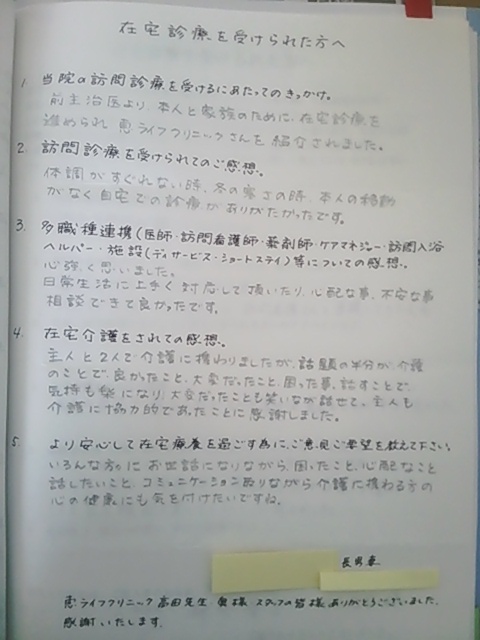 在宅診療を受けられた方へ
1. 当院の訪問診療を受けるにあたってのきっかけ。
前主治医より、本人と家族のために、在宅診療を
進められ 恵ライフクリニックさんを紹介されました。
2. 訪問診療を受けられてのご感想。
体調がすぐれない時、冬の寒さの時、本人の移動
がなく自宅での診療がありがたかったです。
3. 多職種連携(医師・訪問看護師・薬剤師・ケアマネジャー・訪問入浴
ヘルパー・施設(デイサービス・ショートステイ)等についての感想。
心強く思いました。
日常生活に上手く対応して頂いたり、心配な事、不安な事
相談できて良かったです。
4. 在宅介護をされての感想。
主人と2人で介護に携わりましたが、話題の半分が、介護
のことで、良かったこと、大変だったこと、困った事、話すことで、
気持も楽になり、大変だったことも笑いなが話せて、主人も
介護に協力的であったことに感謝しました。
5. より安心して在宅療養を過ごす為に、ご意見ご希望を教えて下さい。
いろんな方々にお世話になりながら、困ったこと、心配なこと
話したいこと、コミュニケーション取りながら介護に携わる方の
心の健康にも気を付けたいですね。
長男妻
恵ライフクリニック 高田先生 奥様 スタッフの皆様 ありがとうございました。
感謝いたします。